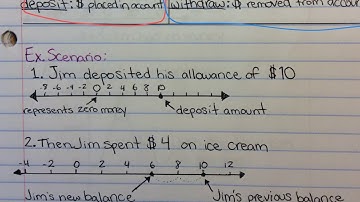 deposit: $ placed in account withdraw: $ removed from account
Ex. Scenario:
1. Jim deposited his allowance of $10
-8 -6 -4 -2 0 2 4 6 8 10
represents zero money deposit amount
2. Then Jim spent $4 on ice cream
-4 -2 0 2 4 6 8 10 12
Jim's new balance Jim's previous balance